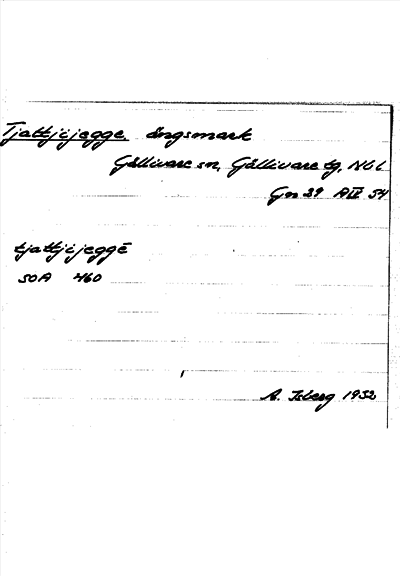 Tjattjijegge, ängsmark
Gällivare sn, Gällivare tg, Nbl
Gm 29 A IV 54
tjattjijeggē
SOA 460
A. Isberg 1932